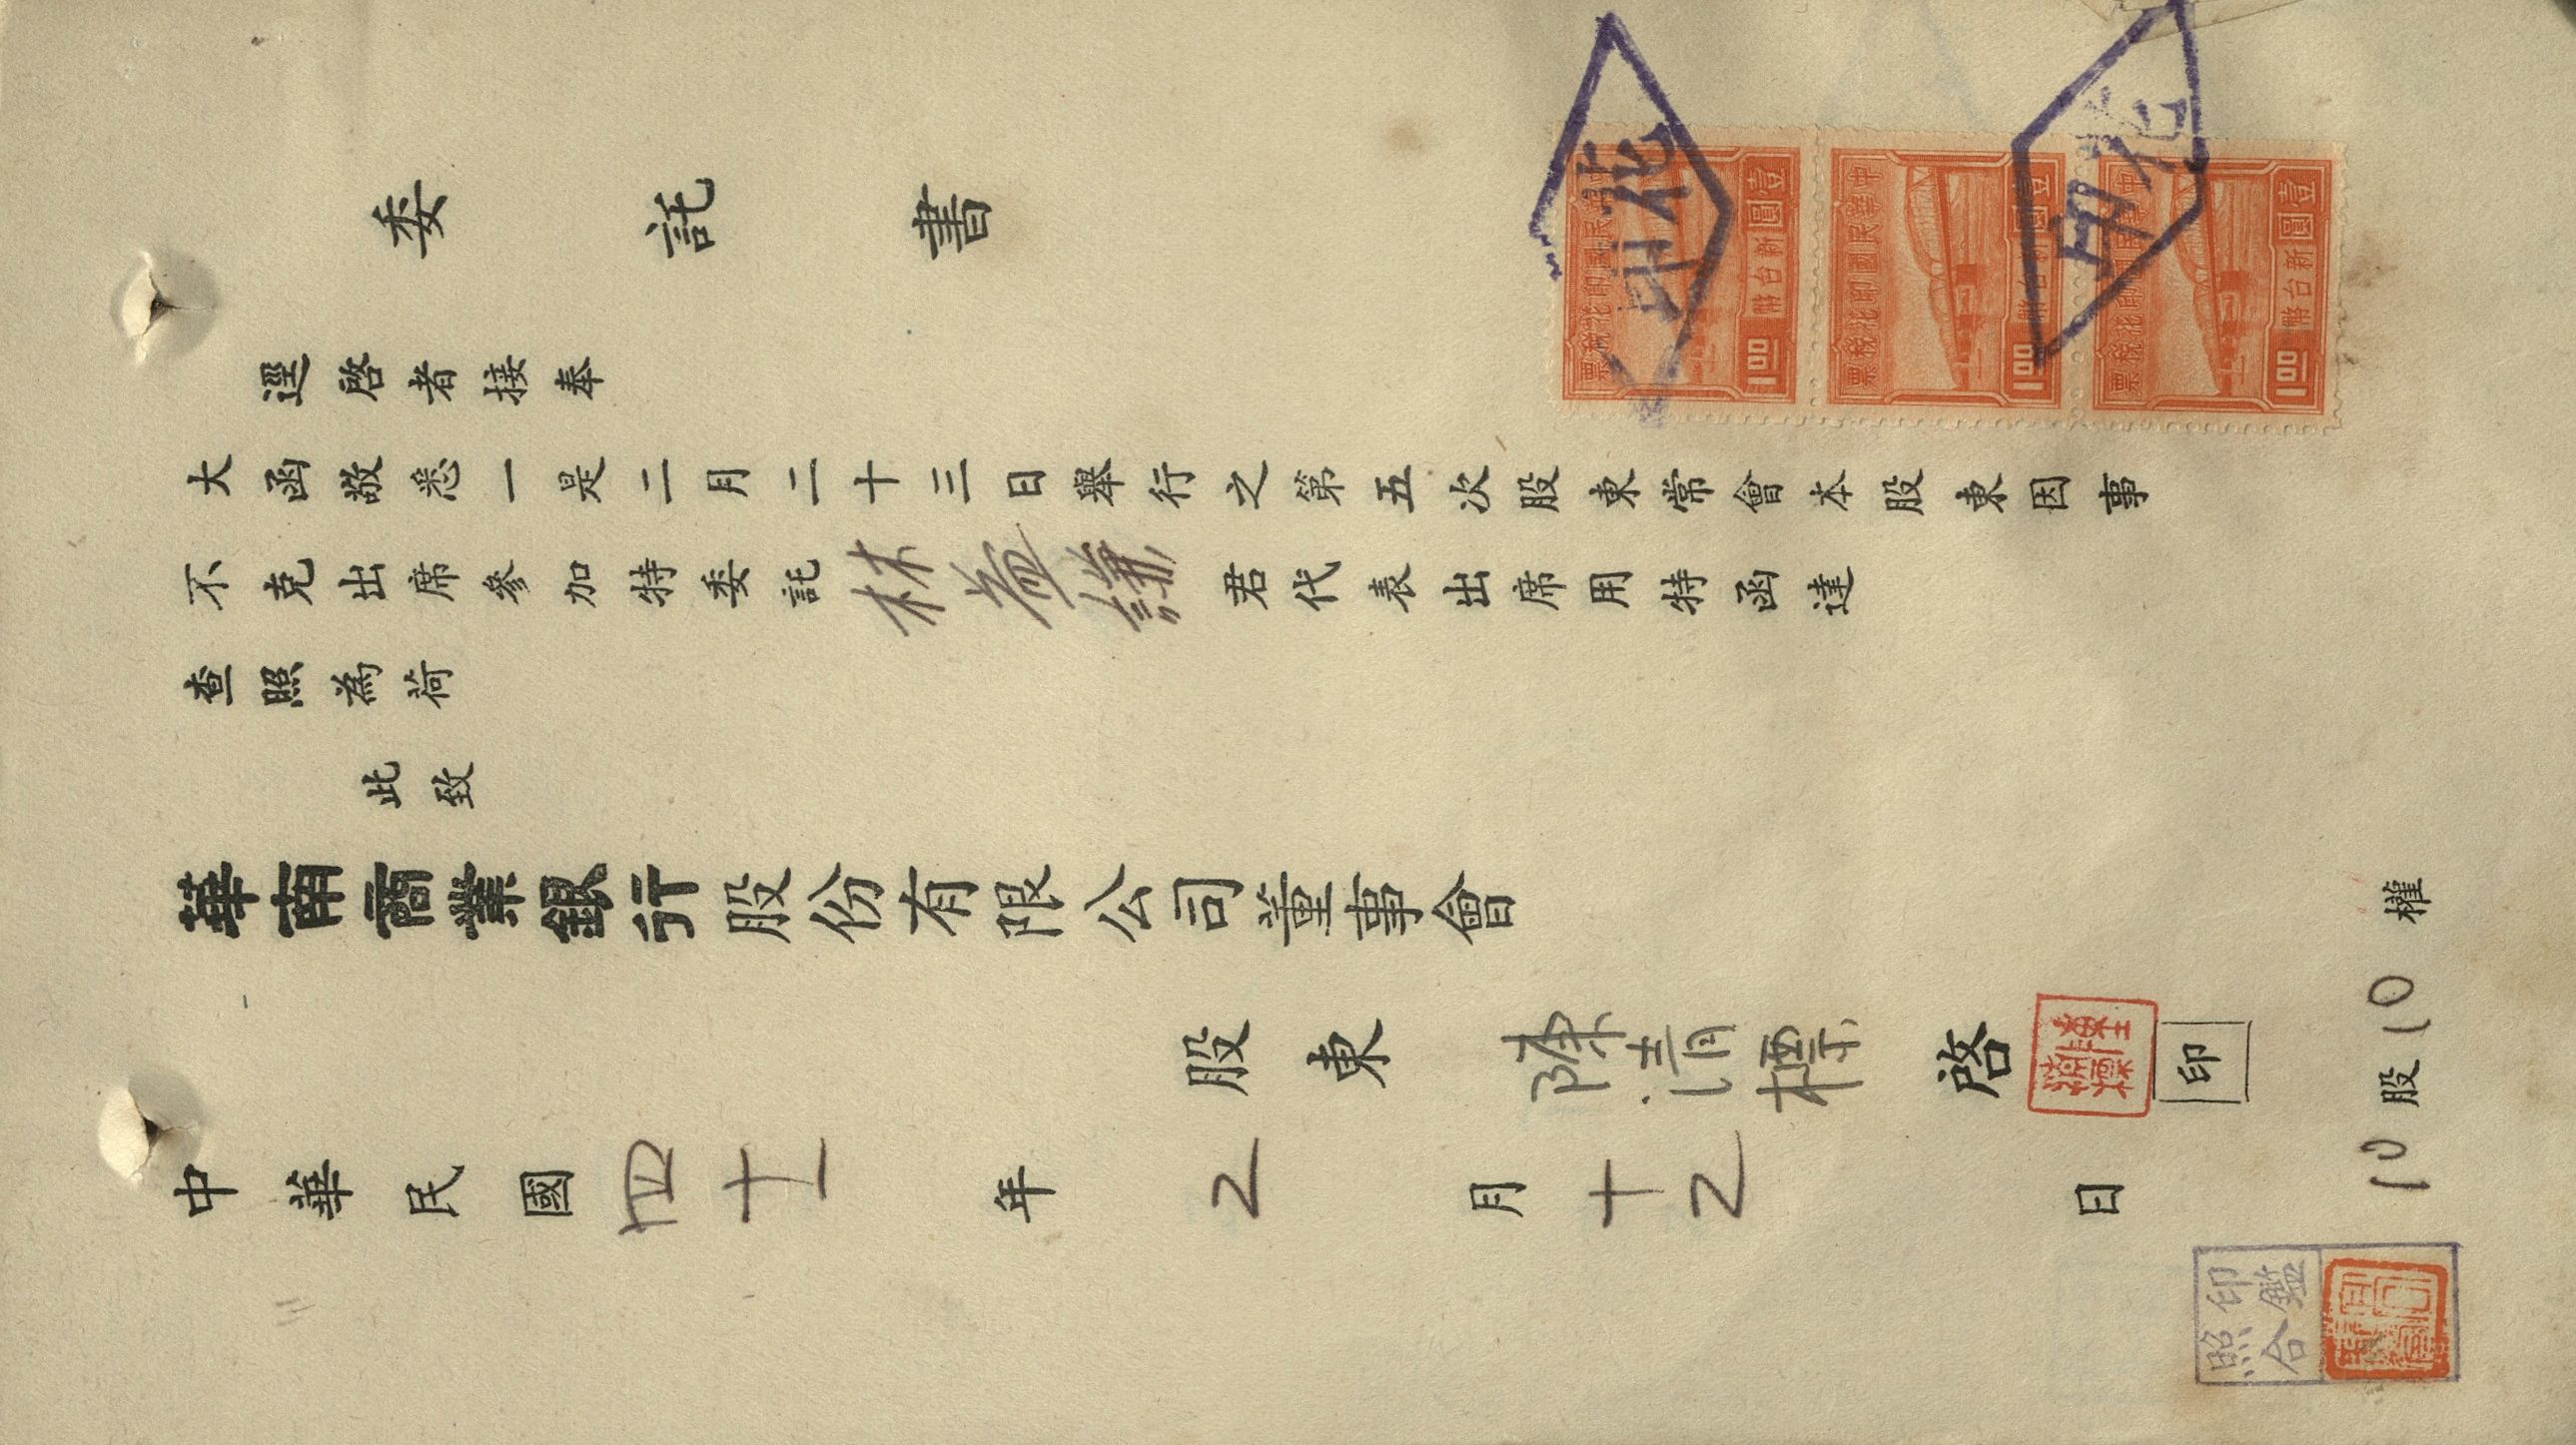 委託書
逕啓者接奉
大函敬悉一是二月二十三日舉行之第五次股東常會本股東因事
不克出席參加特委託林益謙君代表出席用特函達
查照為荷
此致
華南商業銀行股份有限公司董事會
股東 陳清標 啓 印
中華民國四十一年2月十乙日
10股10權
印鑑
照合
印花
印花
中華民國印花稅票
新台幣
壹圓
1.00
中華民國印花稅票
新台幣
壹圓
1.00
中華民國印花稅票
新台幣
壹圓
1.00